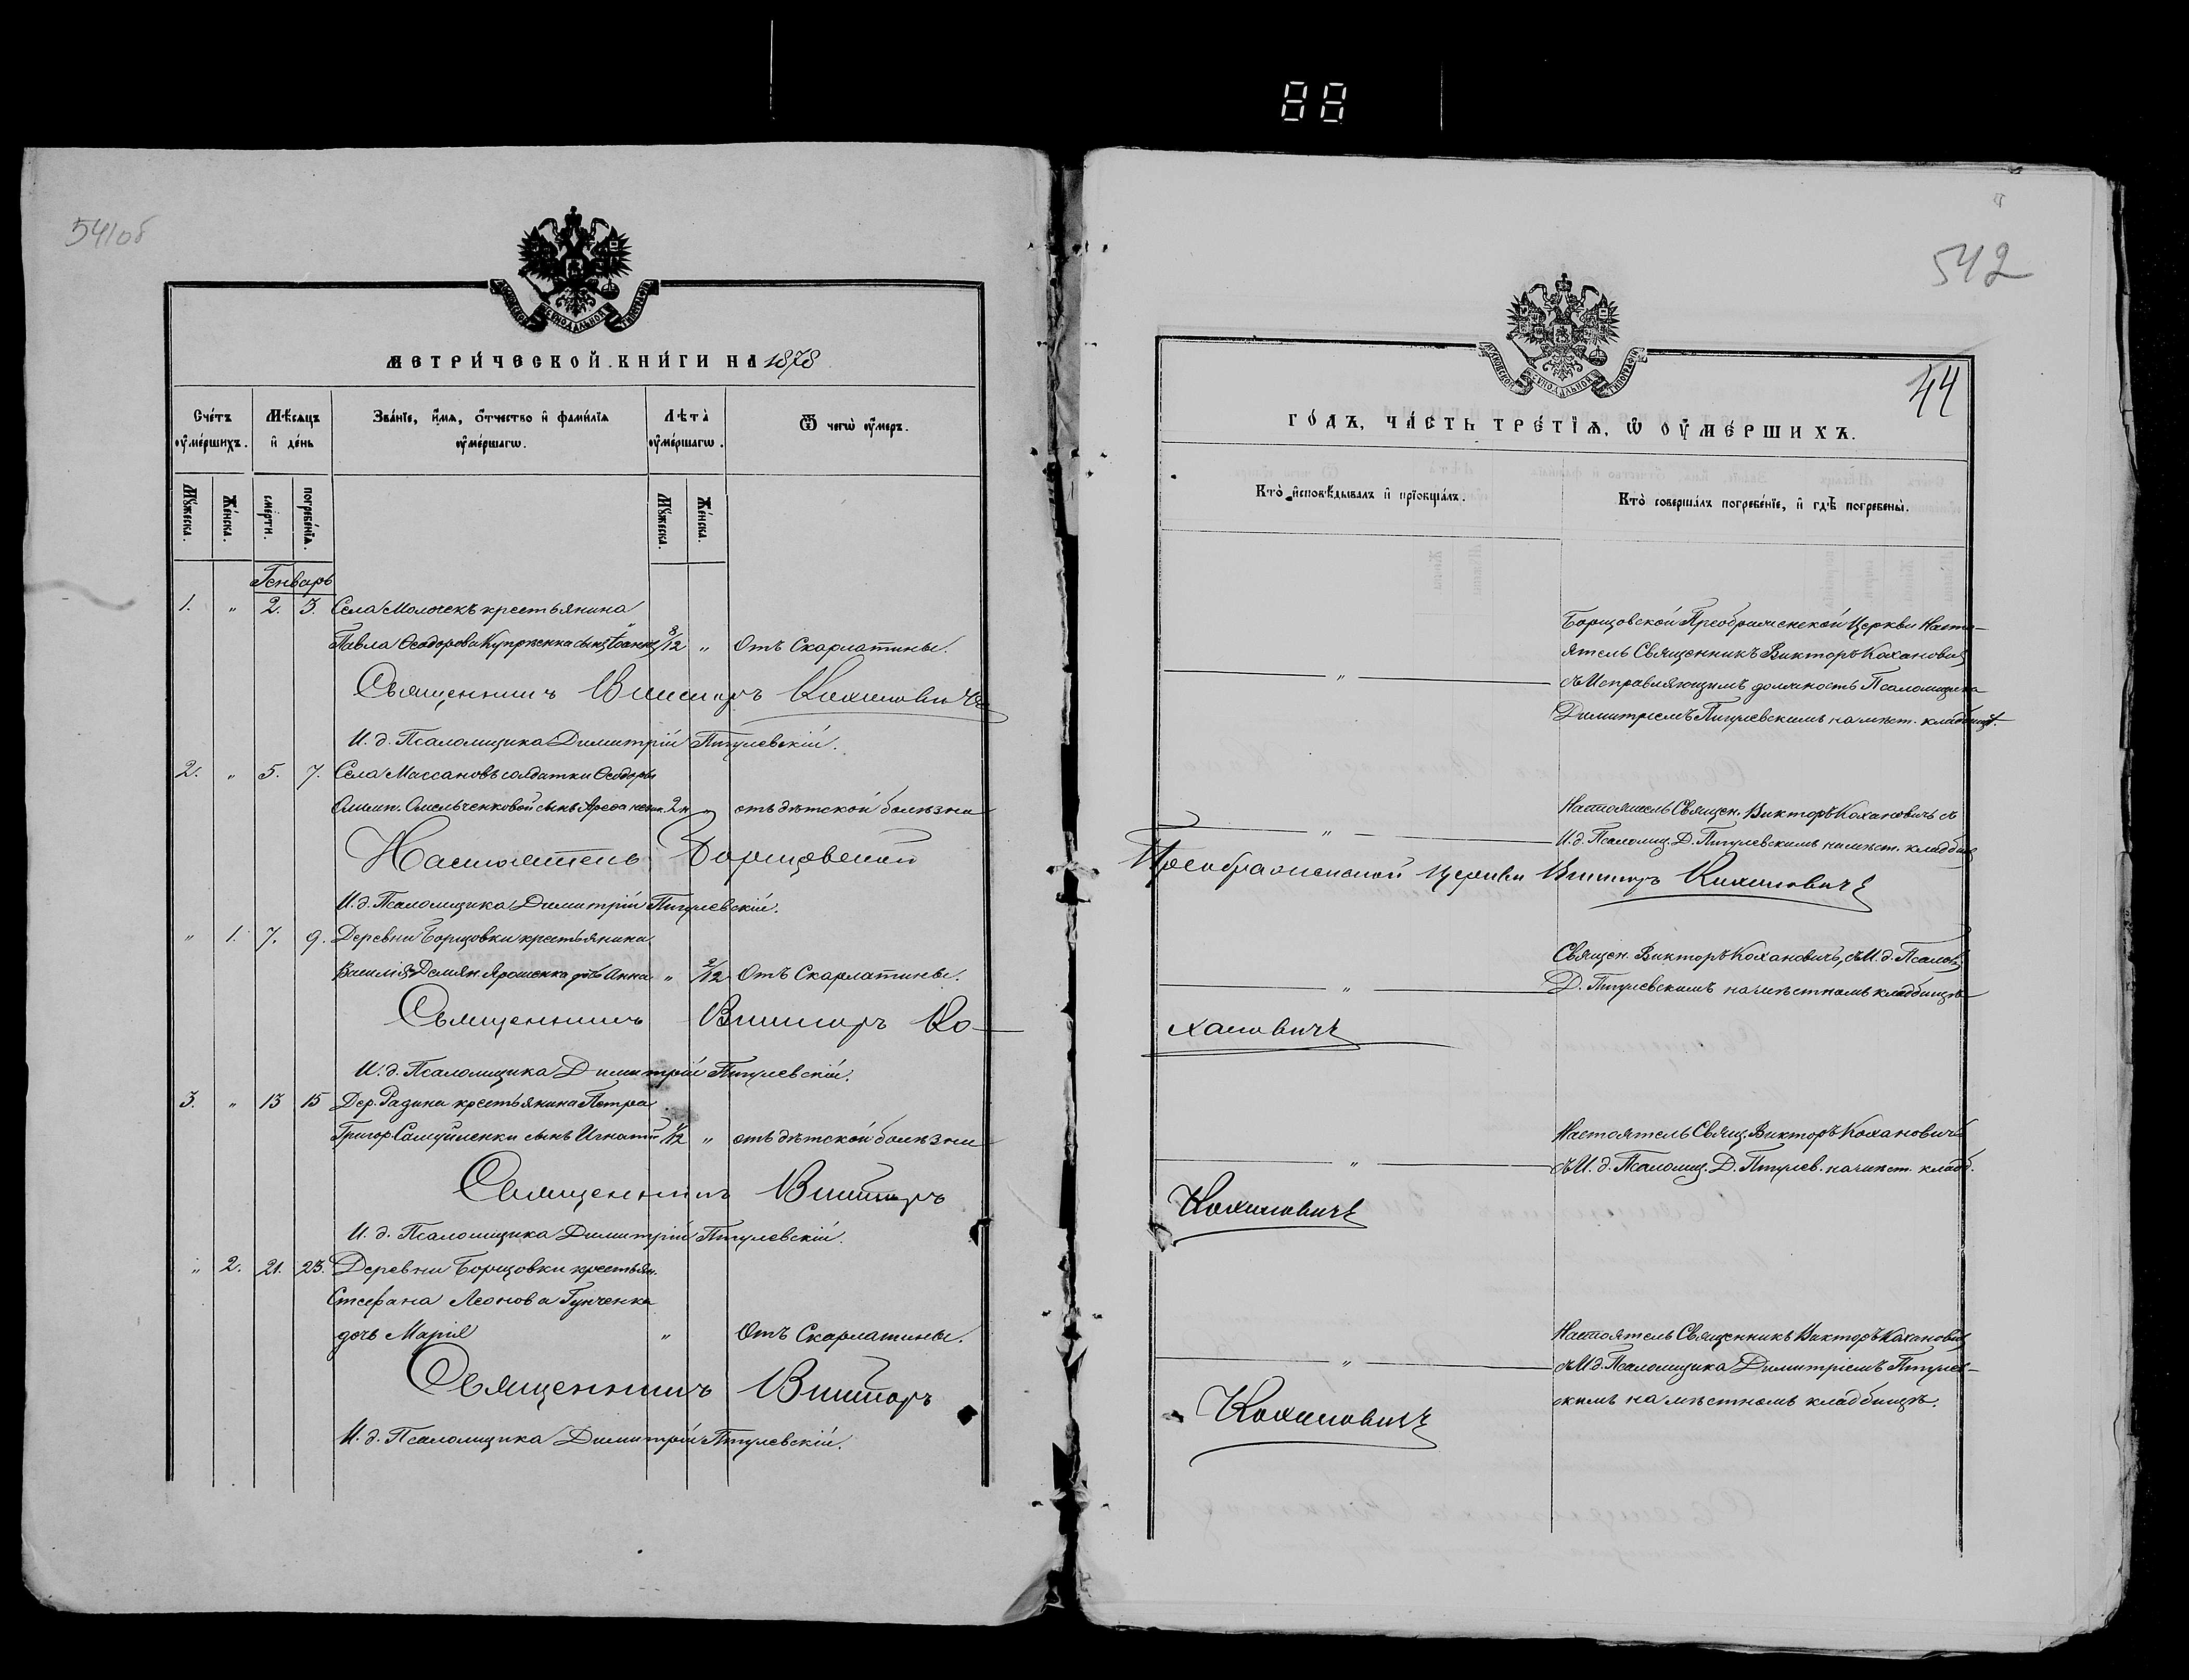 88
541об
МЕТРИЧЕСКОЙ КНИГИ НА 1878
Счетъ оумершихъ.
Мѣсяцъ и день
Званіе, имя, отчество и фамилія оумершагѡ.
Лѣта оумершагѡ.
Ѿ чегѡ оумеръ.
Мужеска.
Женска.
смерти.
погребенія.
Мужеска.
Женска.
Генварь
1. " 2. 3. Села Молочекъ крестьянина
Павла Ѳеодорова Купріенка сынъ Іоаннъ 8/12 " Отъ Скарлатины.
Священникъ Викторъ Кохановичъ
И. д. Псаломщика Димитрій Пигулевскій.
2. " 5. 7. Села Массановъ солдатки Ѳеодоры
Омельченковой сынъ 2 н " отъ дѣтской болѣзни
Настоятель Борщовской
И. д. Псаломщика Димитрій Пигулевскій.
" 1. 7. 9. Деревни Борщовки крестьянина
Василія Демян. Ярошенка дочь Анна " 2/12 Отъ Скарлатины.
Священникъ Викторъ Ко-
И. д. Псаломщика Димитрій Пигулевскій.
3. " 13 15 Дер. Радина крестьянина Петра
Григор. Самуйленки сынъ Игнатій 1/12 " отъ дѣтской болѣзни
Священникъ Викторъ
И. д. Псаломщика Димитрій Пигулевскій.
" 2. 21. 23. Деревни Борщовки крестьян.
Стефана Леонова Гунченка
дочь Марія " Отъ Скарлатины.
Священникъ Викторъ
И. д. Псаломщика Димитрій Пигулевскій.
542
44
ГОДЪ, ЧАСТЬ ТРЕТІЯ, Ѿ ОУМЕРШИХЪ.
Кто исповѣдывалъ и пріобщалъ.
Кто совершалъ погребеніе, и гдѣ погребены.
Борщовской Преображенской Церкви Насто-
ятель Священникъ Викторъ Кохановичъ
" съ Исправляющимъ должность Псаломщика
Димитріемъ Пигулевскимъ на мѣст. кладбищѣ.
Настоятель Священ. Викторъ Кохановичъ съ
" И. д. Псаломщ. Д. Пигулевскимъ на мѣст. кладбищ
Преображенской Церкви Викторъ Кохановичъ
Священ. Викторъ Кохановичъ, съ И. д. Псалом.
" Д. Пигулевскимъ на мѣстномъ кладбищѣ
хановичъ
Настоятель Свящ. Викторъ Кохановичъ
" съ И. д. Псаломщ. Д. Пигулев. на мѣст. кладб.
Кохановичъ
Настоятель Священникъ Викторъ Кохановичъ
" съ И. д. Псаломщика Димитріемъ Пигулев-
скимъ на мѣстномъ кладбищѣ.
Кохановичъ